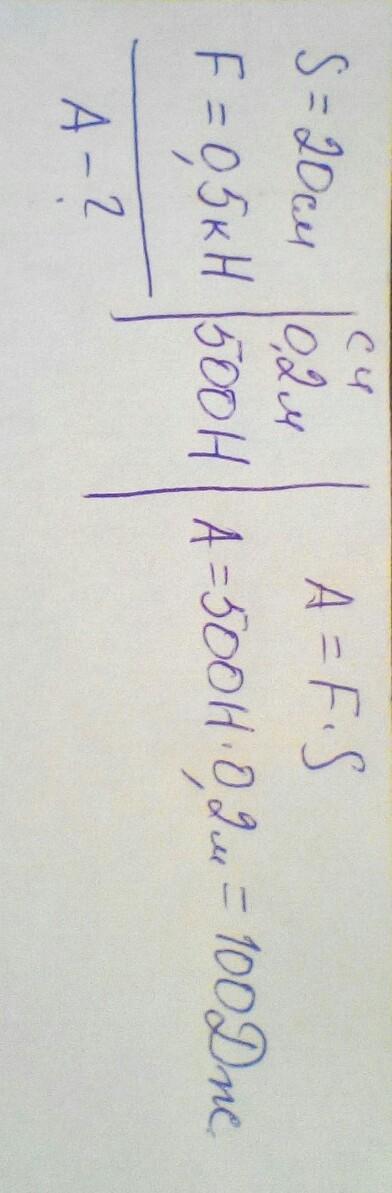 S = 20 см
F = 0,5 кН
A - ?
СИ
0,2 м
500 Н
A = F · S
A = 500 Н · 0,2 м = 100 Дж.